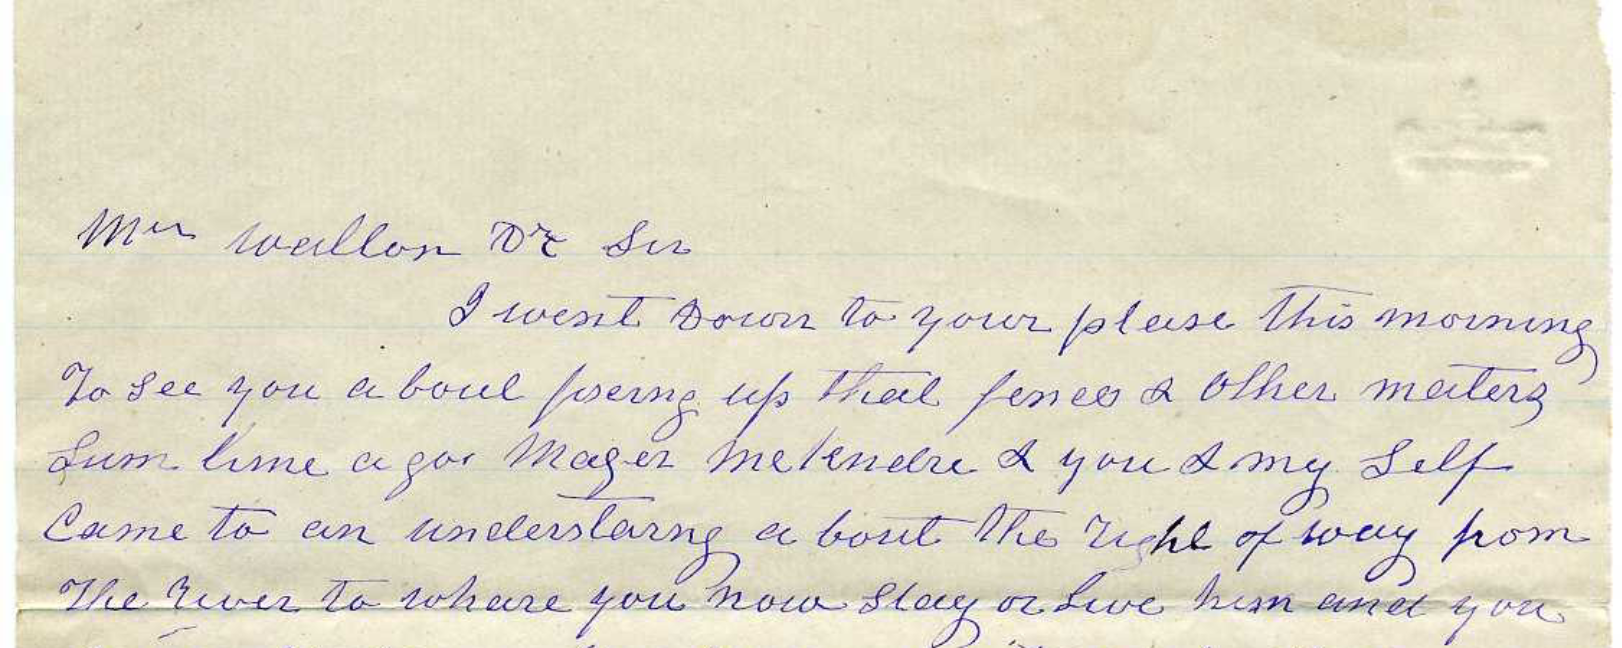 Mr Walton Dr Sir
I went Down to your please this morning
To See you a bout fixeing up that fence & Other maters
Sum time a goe Mager McKendre & you & my Self
Came to an understang a bout the right of way from
The River to whare you now Stay or Live him and you